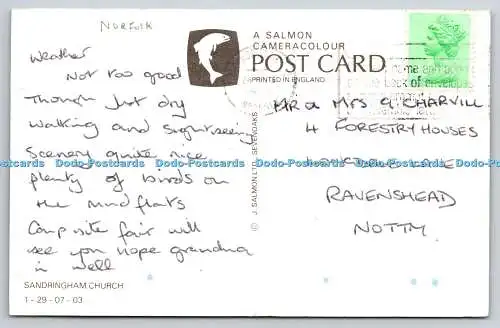 NORFOLK
A SALMON
CAMERACOLOUR
POST CARD
PRINTED IN ENGLAND
Weather
Not too good
Though Just dry
Walking and sightseeing
Scenery quite nice
plenty of birds on
the mudflats
Camp site fair will
see you hope grandma
is well
SANDRINGHAM CHURCH
1 - 29 - 07 - 03
© J. SALMON LTD. SEVENOAKS
back of envelopes
MR & MRS G CHARVILL
4 FORESTRY HOUSES
RAVENSHEAD
NOTTM
Dodo-Postcards Dodo-Postcards Dodo-Postcards Dodo-Postcards Dodo-Postcards Dodo-Postcards